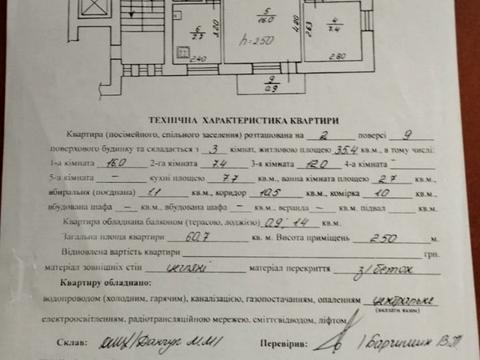 6
7.7
3.20
2.40
5
16.0
h=250
4.80
2.63
4
7.4
2.80
9
0.9
ТЕХНІЧНА ХАРАКТЕРИСТИКА КВАРТИРИ
Квартира (посімейного, спільного заселення) розташована на 2 поверсі 9
поверхового будинку та складається з 3 кімнат, житловою площею 35.4 кв.м., в тому числі:
1-а кімната 16.0 2-га кімната 7.4 3-я кімната 12.0 4-а кімната -
5-а кімната – кухні площею 7.7 кв.м., ванна кімната 2.7 кв.м.,
вбиральня (поєднана) 1.1 кв.м., коридор 10.5 кв.м., комірка 1.0 кв.м.,
вбудована шафа – кв.м., вбудована шафа – кв.м., веранда – кв.м. підвал кв.м.
Квартира обладнана балконом (терасою, лоджією) 0.9; 1.4 кв.м.
Загальна площа квартири 60.7 кв. м. Висота приміщень 250 м.
Відновлена вартість квартири грн.
матеріал зовнішніх стін цегляні матеріал перекриття з/бетон
Квартиру обладнано:
водопроводом (холодним, гарячим), каналізацією, газопостачанням, опаленням центральне
(вказати яким)
електроосвітленням, радіотрансляційною мережею, сміттєвідводом, ліфтом
Склав: Перевірив: